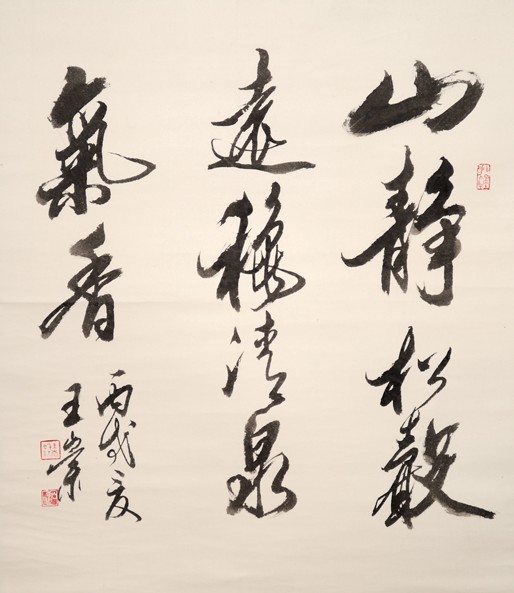 山靜松聲
遠穐清泉
氣香
丙戌夏
王崇